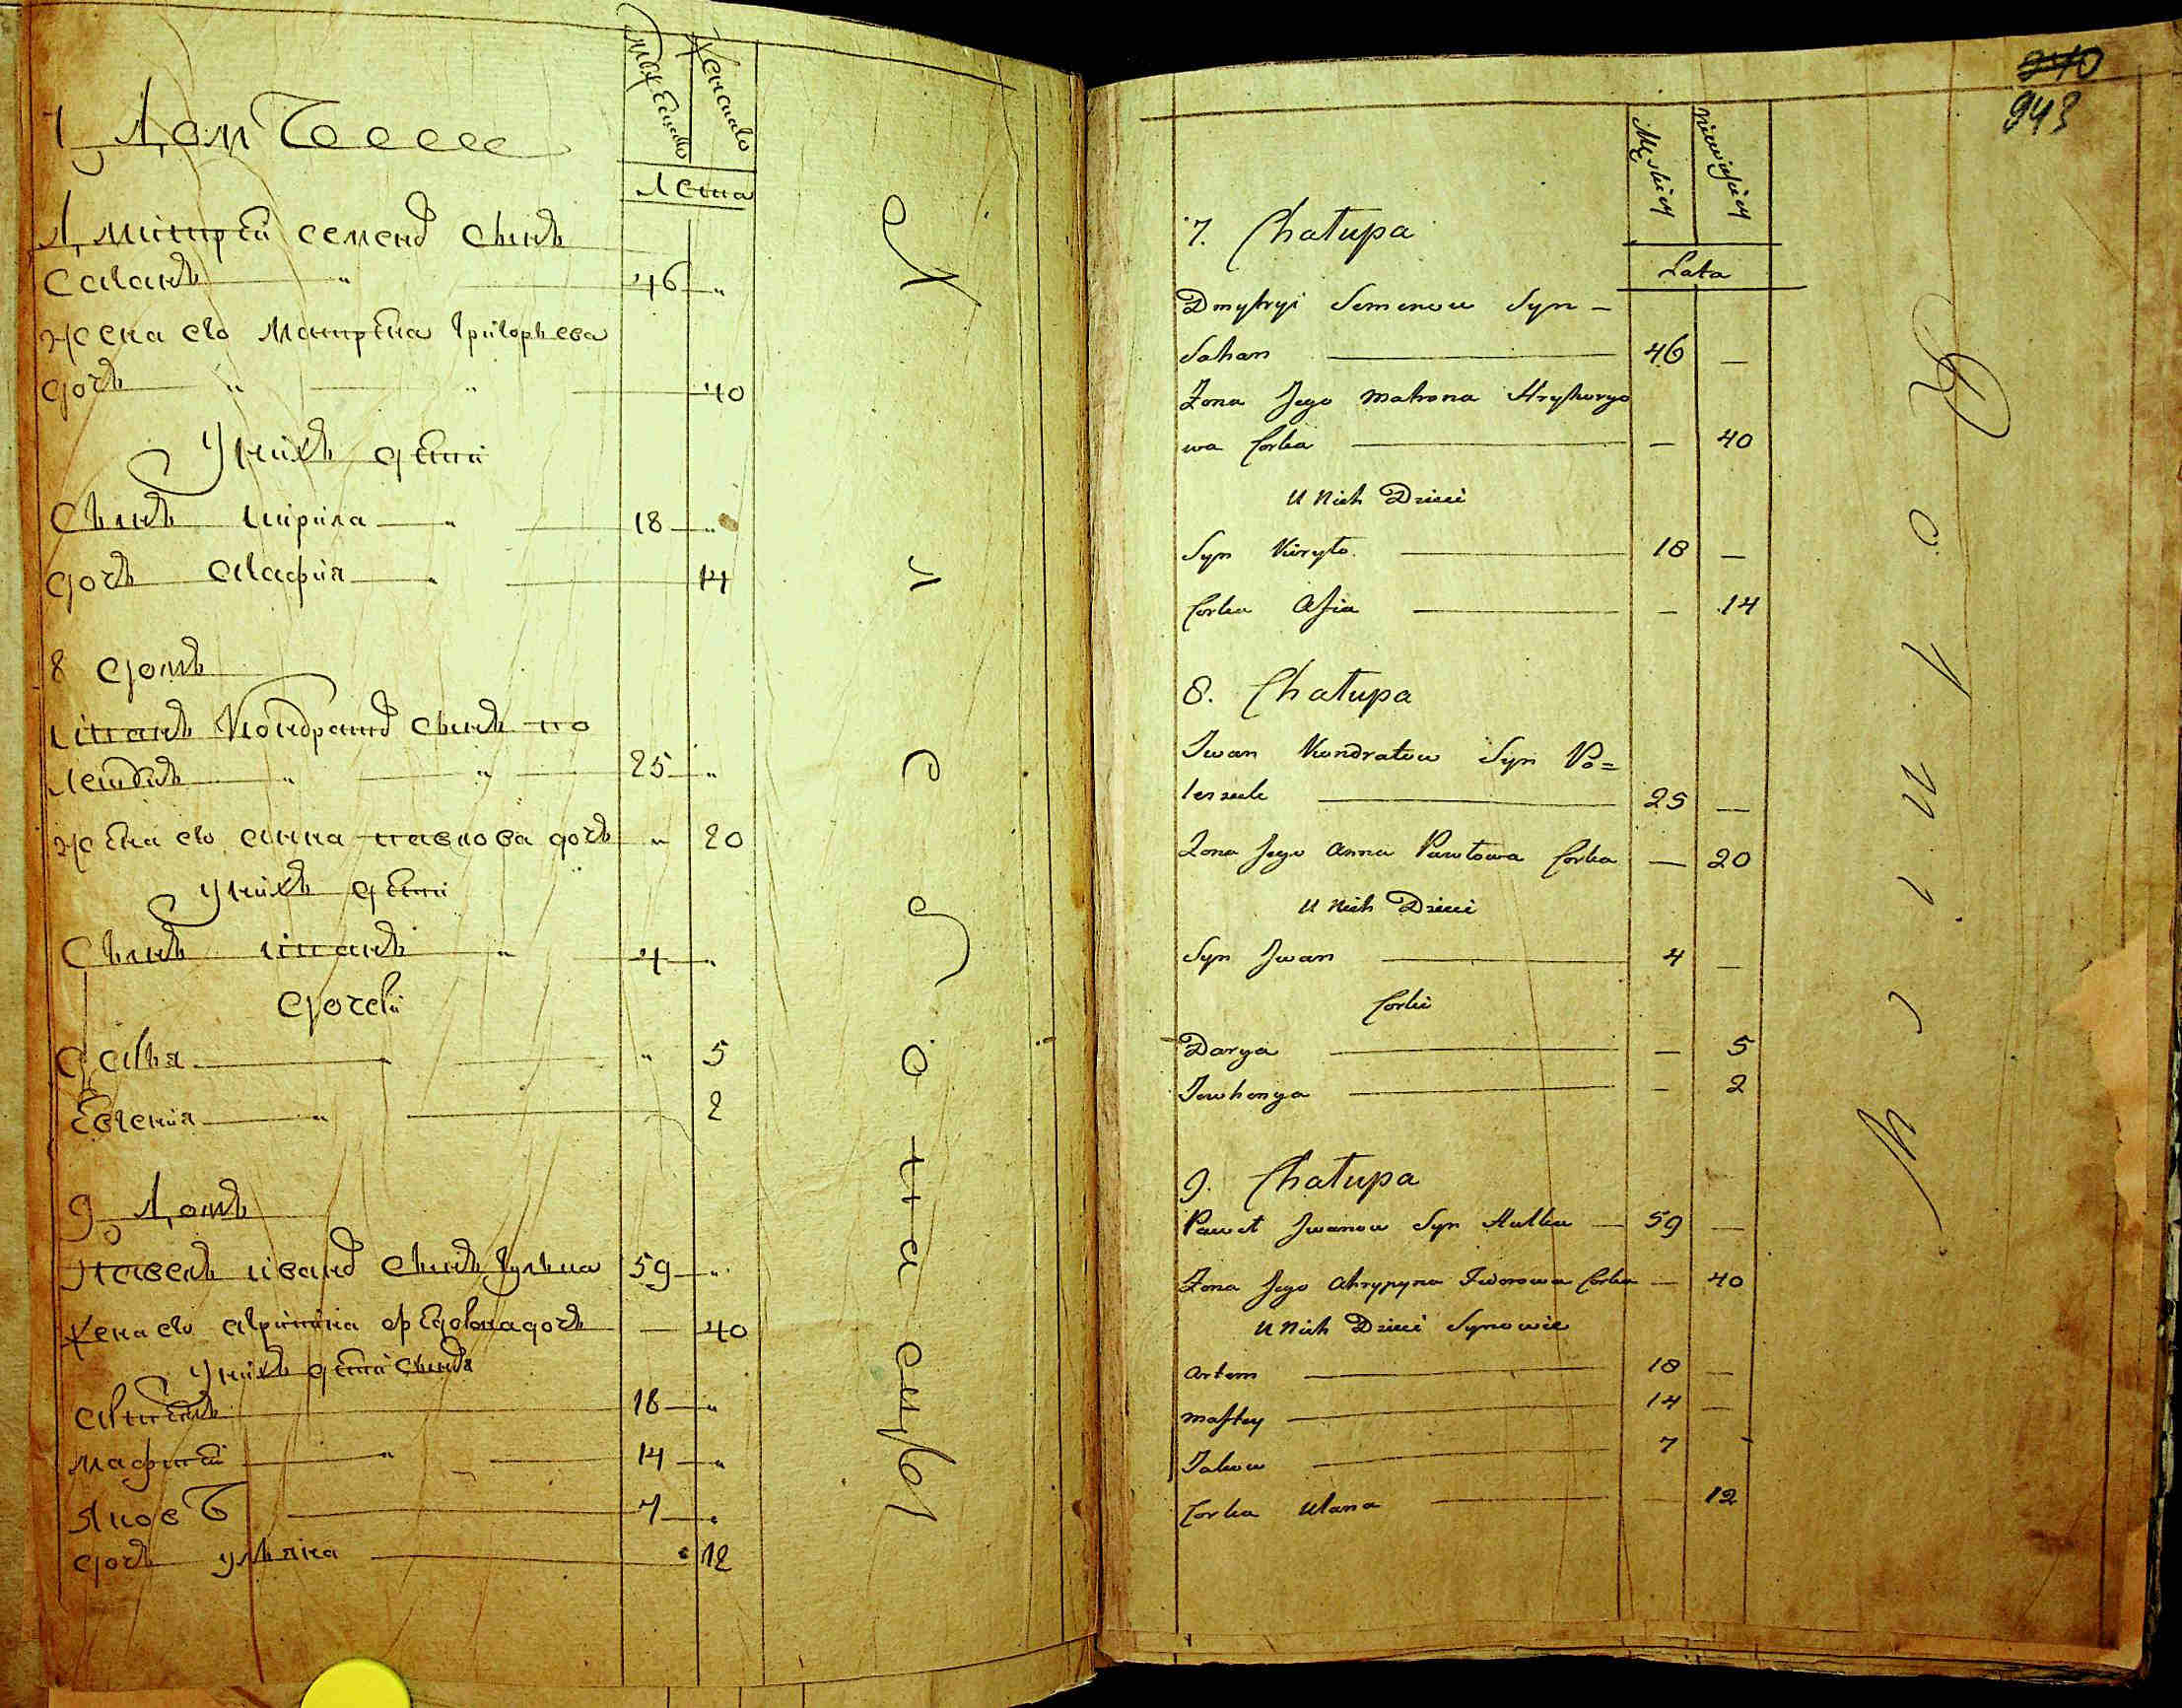 Мужеска
Женска
Лета
7 Домъ
Дмитрей Семено сынъ
Саганъ 46
жена его Матрена Григорьева
дочь 40
У нихъ дети
Сынъ Кирила 18
дочь Агафия 14
8 домъ
Иванъ Кондрато сынъ По
лещукъ 25
жена его анна павлова дочь 20
У нихъ дети
Сынъ иванъ 4
дочери
Дарья 5
Евгения 2
9 Домъ
Павелъ ивано сынъ Гулька 59
жена его агрипина федорова дочь 40
У нихъ дети сыновя
Артемъ 18
Мафтей 14
Яковъ 7
дочь ульяна 12
240
943
Męskiey
Niewieściey
Lata
7. Chałupa
Dmytryi Semenow Syn –
Sahan 46 –
Żona Jego Matrona Hryhorye
wa Corka – 40
U Nich Dzieci
Syn Kiryło 18 –
Corka – 14
8. Chałupa
Jwan Kondratow Syn Po=
leszuk 25 –
Żona Jego Anna Pawłowa Corka – 20
U Nich Dzieci
Syn Jwan 4 –
Corki
Darya – 5
Jewhenya – 2
9. Chałupa
Paweł Jwanow Syn Hulka – 59 –
Żona Jego Ahrypyna Fedorowa Corka – 40
U Nich Dzieci Synowie
Artem 18 –
Maftey 14 –
Jakow 7
Corka Ulana – 12